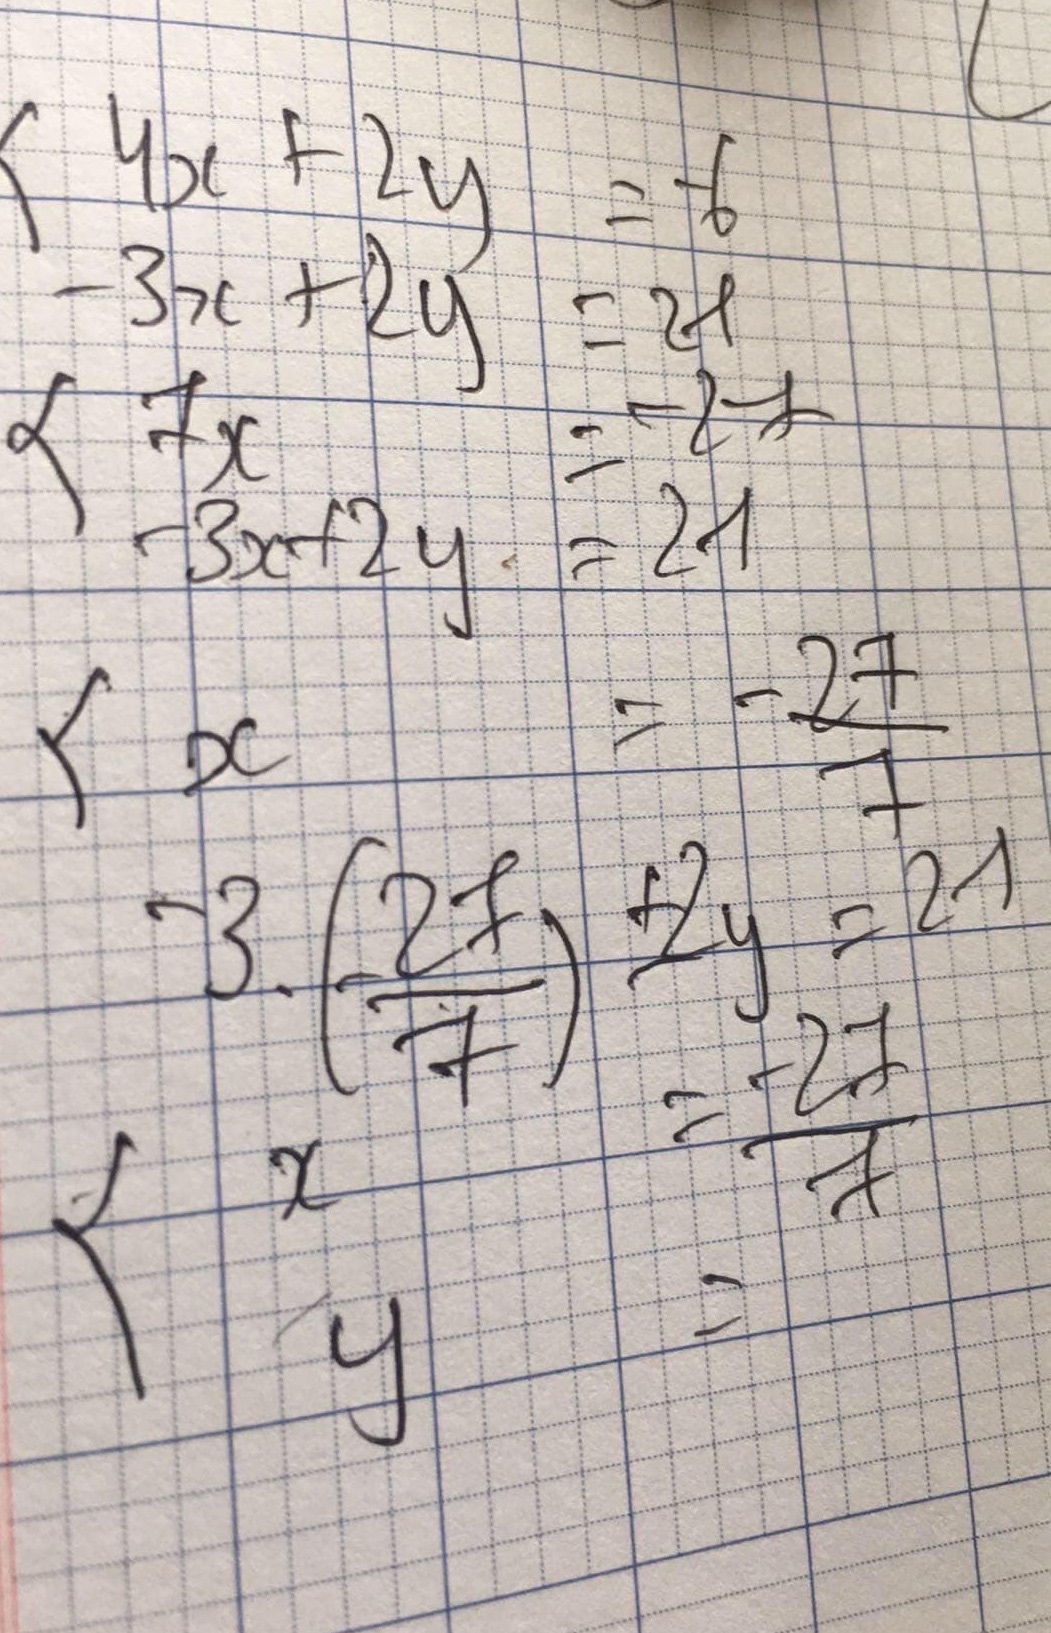 4x + 2y = -6
-3x + 2y = 21
7x = -27
-3x+2y = 21
x = -27/7
-3.(-27/7) +2y = 21
x = -27/7
y =